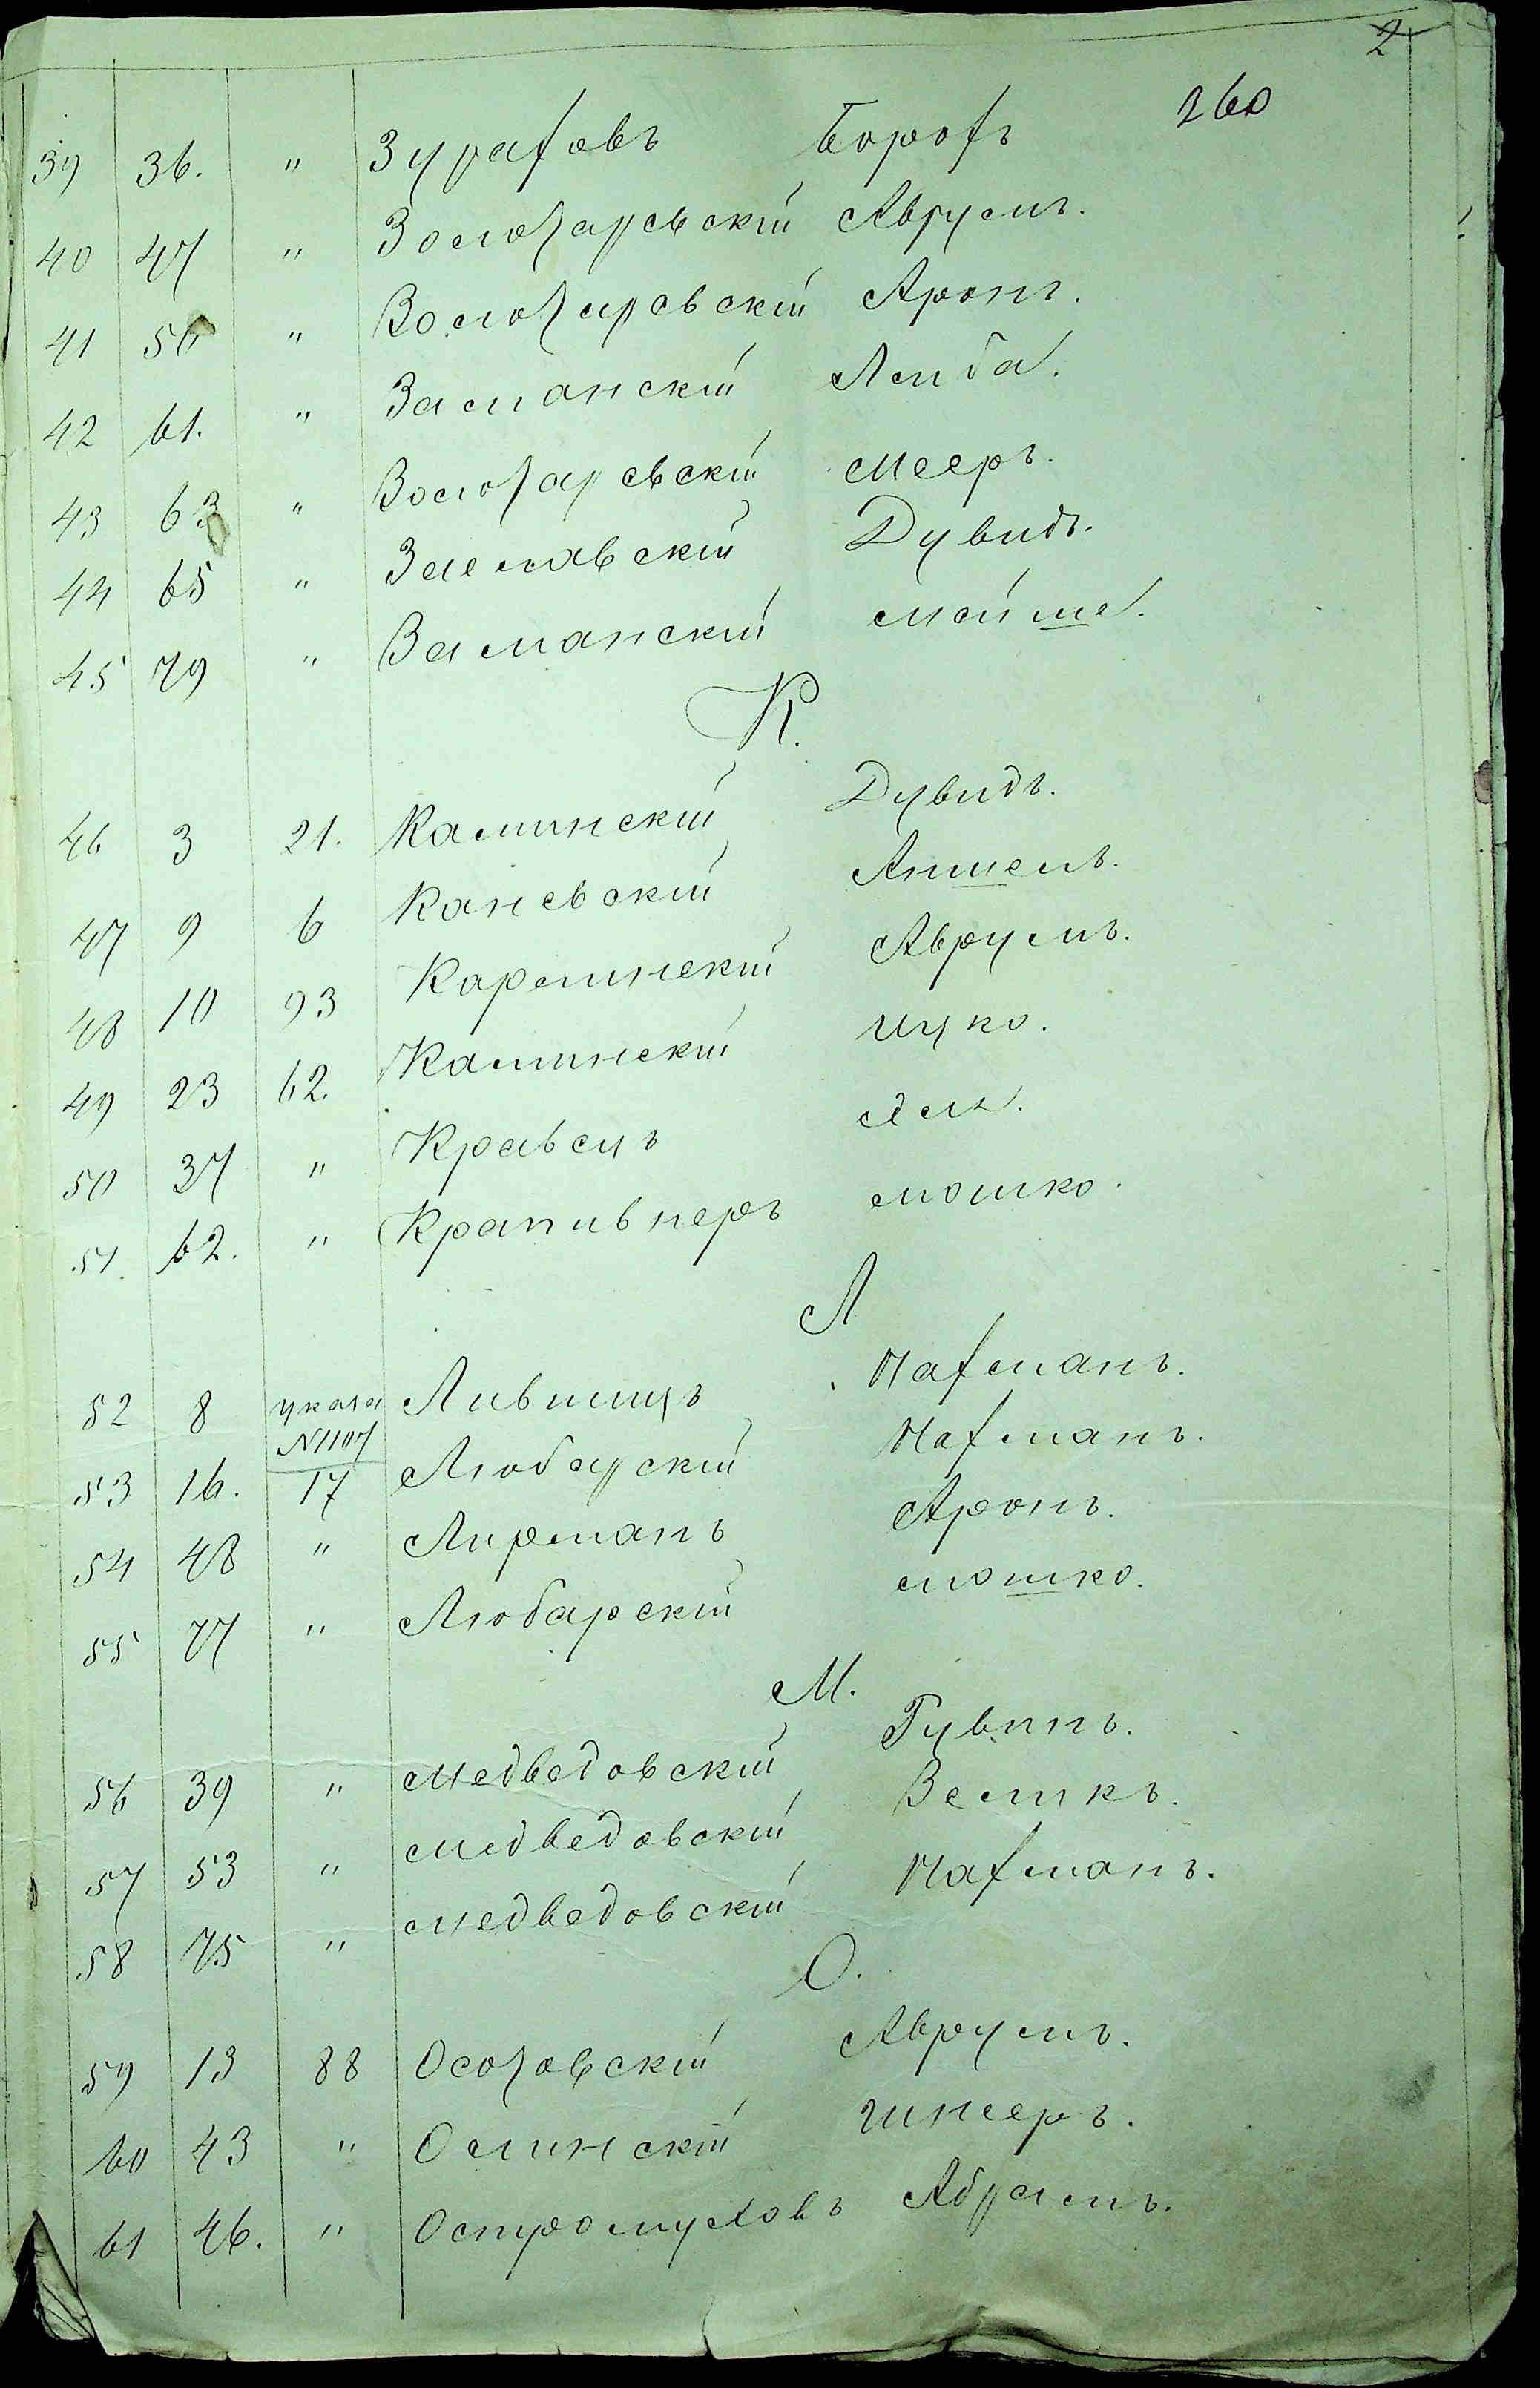 2
260
39 36. " Зуратовъ Борохъ
40 47 " Золотаревскій Аврумъ.
41 50 " Золотаревскій Аронъ.
42 61. " Заманскій Лейба.
43 63 " Золотаревскій Мееръ.
44 65 " Заславскій Дувидъ.
45 79 " Заманскій Мойше.
К.
46 3 21. Калинскій Дувидъ.
47 9 6 Каневскій Аншель.
48 10 93 Карлинскій Аврумъ.
49 23 62. Калинскій Ицко.
50 37 " Кравецъ
51. 62. " Крапивнеръ Мошко.
Л
52 8 указа Лившицъ Нафтанъ.
№1107
53 16. 17 Любарскій Нафтанъ.
54 48 " Лирманъ Аронъ.
55 77 " Любарскій Мошко.
М.
56 39 " Медведовскій Рувинъ.
57 53 " Медведовскій Великъ.
58 75 " Медведовскій Нафтанъ.
О.
59 13 88 Осотовскій Аврумъ.
60 43 " Олинскій
61 46. " Остромуховъ Абрамъ.